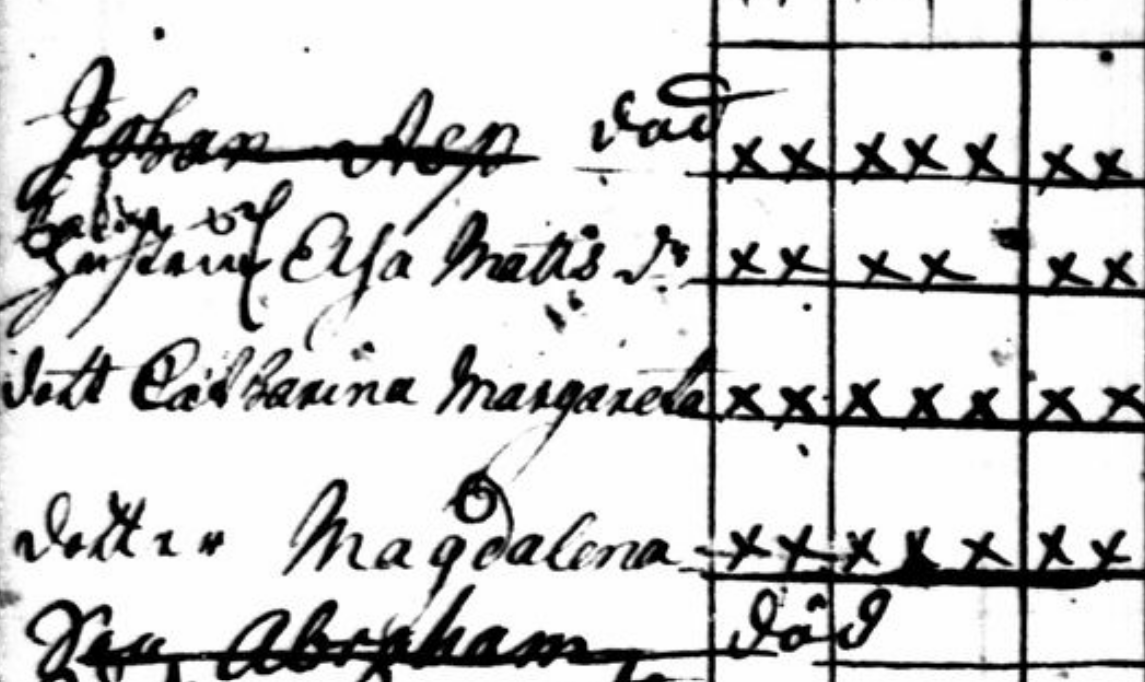 Johan Asp död
Hustru Elsa Matts dr
dott Catharina Margareta
dotter Magdalena
Son Abraham död